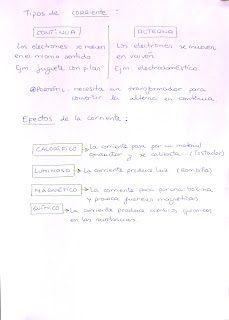 Tipos de corriente:
CONTÍNUA
ALTERNA
Los electrones se mueven
en el mismo sentido
Ejm: juguete con pilas
Los electrones se mueven
en vaivén
Ejm: electrodoméstico
necesita un transformador para
convertir la alterna en contínua.
Efectos de la corriente:
CALORÍFICO → La corriente pasa por un material
conductor y se calienta (Tostador)
LUMINOSO → La corriente produce luz (Bombilla)
MAGNÉTICO → La corriente pasa por una bobina
y provoca fuerzas magnéticas
QUÍMICO → La corriente produce cambios químicos
en las sustancias.